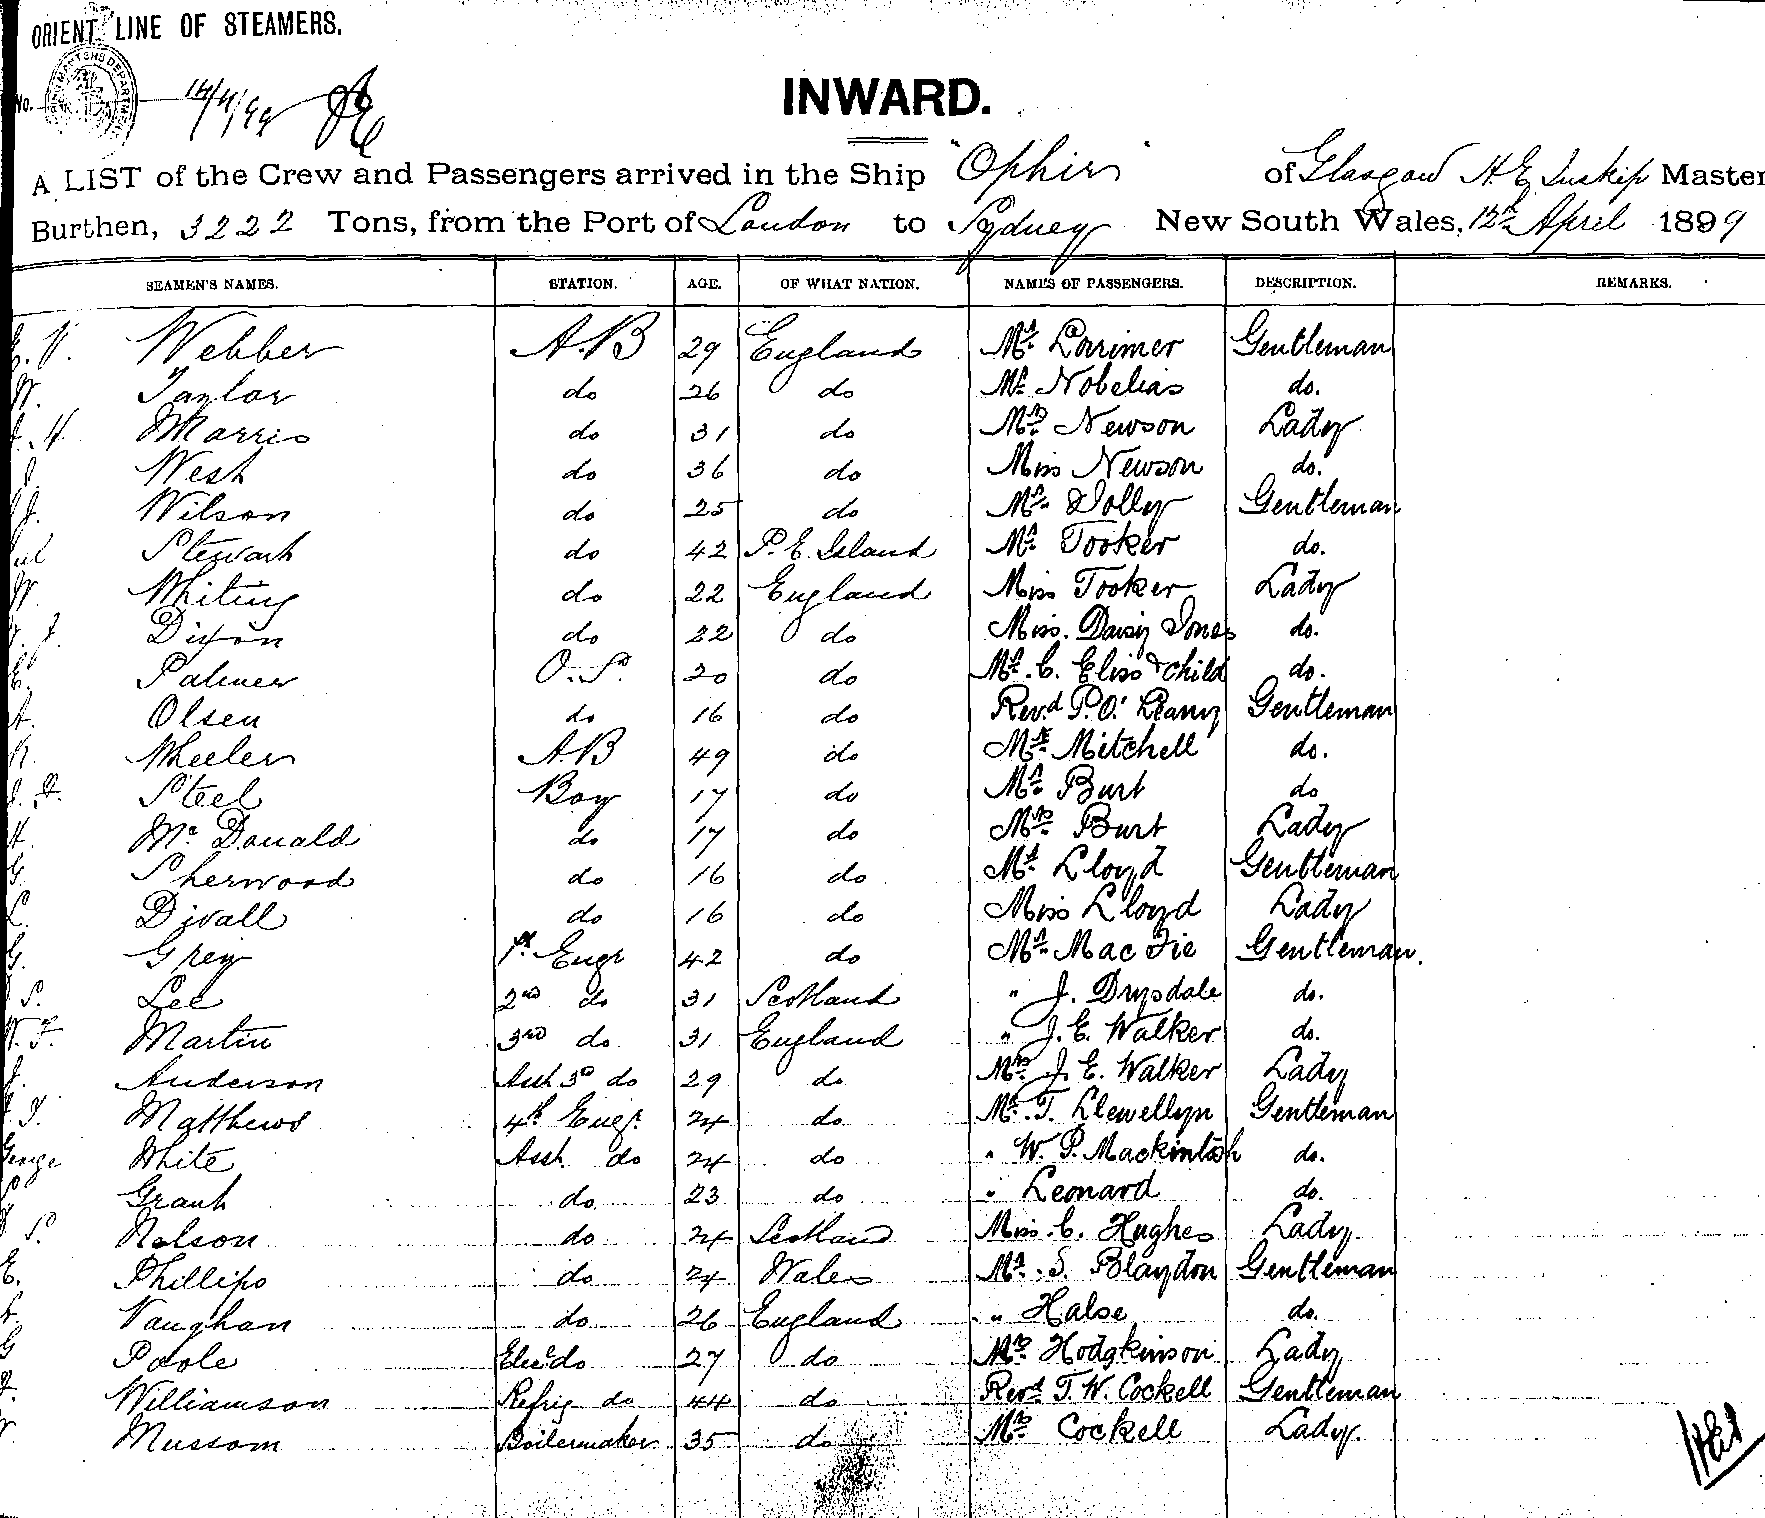 ORIENT LINE OF STEAMERS.
No. 14/4/99
INWARD.
A LIST of the Crew and Passengers arrived in the Ship "Ophir" of Glasgow H. E. Inskip Master
Burthen, 3222 Tons, from the Port of London to Sydney New South Wales, 12th April 1899
SEAMEN'S NAMES. STATION. AGE. OF WHAT NATION. NAMES OF PASSENGERS. DESCRIPTION. REMARKS.
V. Webber A.B 29 England Mr. Larimer Gentleman
W. Taylor do 26 do Mr. Nobelias do.
H. Marris do 31 do Mrs. Newson Lady
J. West do 36 do Miss Newson do.
J. Wilson do 25 do Mr. Dolley Gentleman
Stewart do 42 P. E. Island Mr. Tooker do.
W. Whiting do 22 England Miss Tooker Lady
J. Dixon do 22 do Miss. Daisy Jones do.
E. Palmer O.S. 20 do C. Eliss & child do.
A. Olsen do 16 do Revd. P. O'Leary Gentleman
Wheeler A.B 49 do Mr. Mitchell do.
Steel Boy 17 do Mr. Burt do
Mc. Donald do 17 do Mrs. Burt Lady
G. Sherwood do 16 do Mr. Lloyd Gentleman
L. Divall do 16 do Miss Lloyd Lady
G. Grey 1st. Engr 42 do Mr. Mac Fie Gentleman.
S. Lee 2nd do 31 Scotland " J. Drysdale do.
W. F. Martin 3rd do 31 England " J. E. Walker do.
J. Anderson Asst 3rd do 29 do Mrs. J. E. Walker Lady
Matthews 4th Engr. 24 do Mr. T. Llewellyn Gentleman
George White Asst. do 24 do " W. P. Mackintosh do.
Grant do 23 do " Leonard do.
S. Nelson do 24 Scotland Miss. C. Hughes Lady
E. Phillips do 24 Wales Mr. S. Blaydon Gentleman
Vaughan do 26 England " Halse do.
G Poole Elec. do 27 do Mrs. Hodgkinson Lady
Williamson Refrig do 44 do Revd. T. W. Cockell Gentleman
Mussom Boilermaker 35 do Mrs. Cockell Lady.